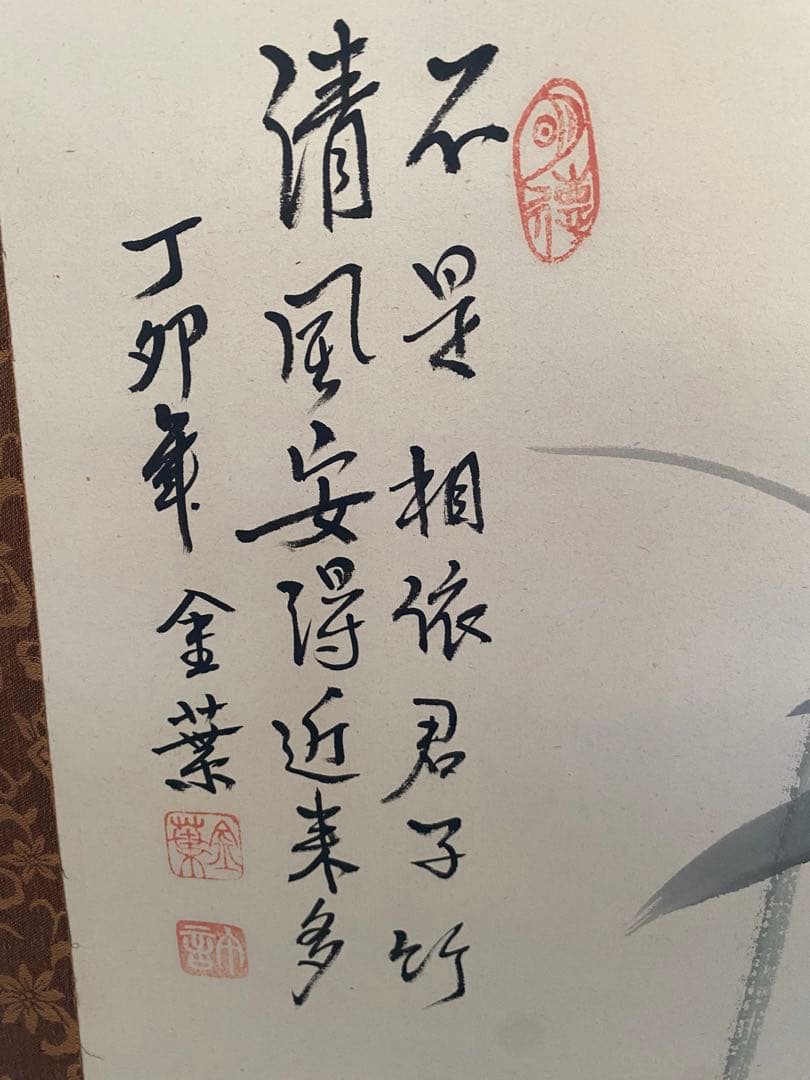 明德
不是相依君子竹
清風安得近来多
丁卯年 金葉
金葉